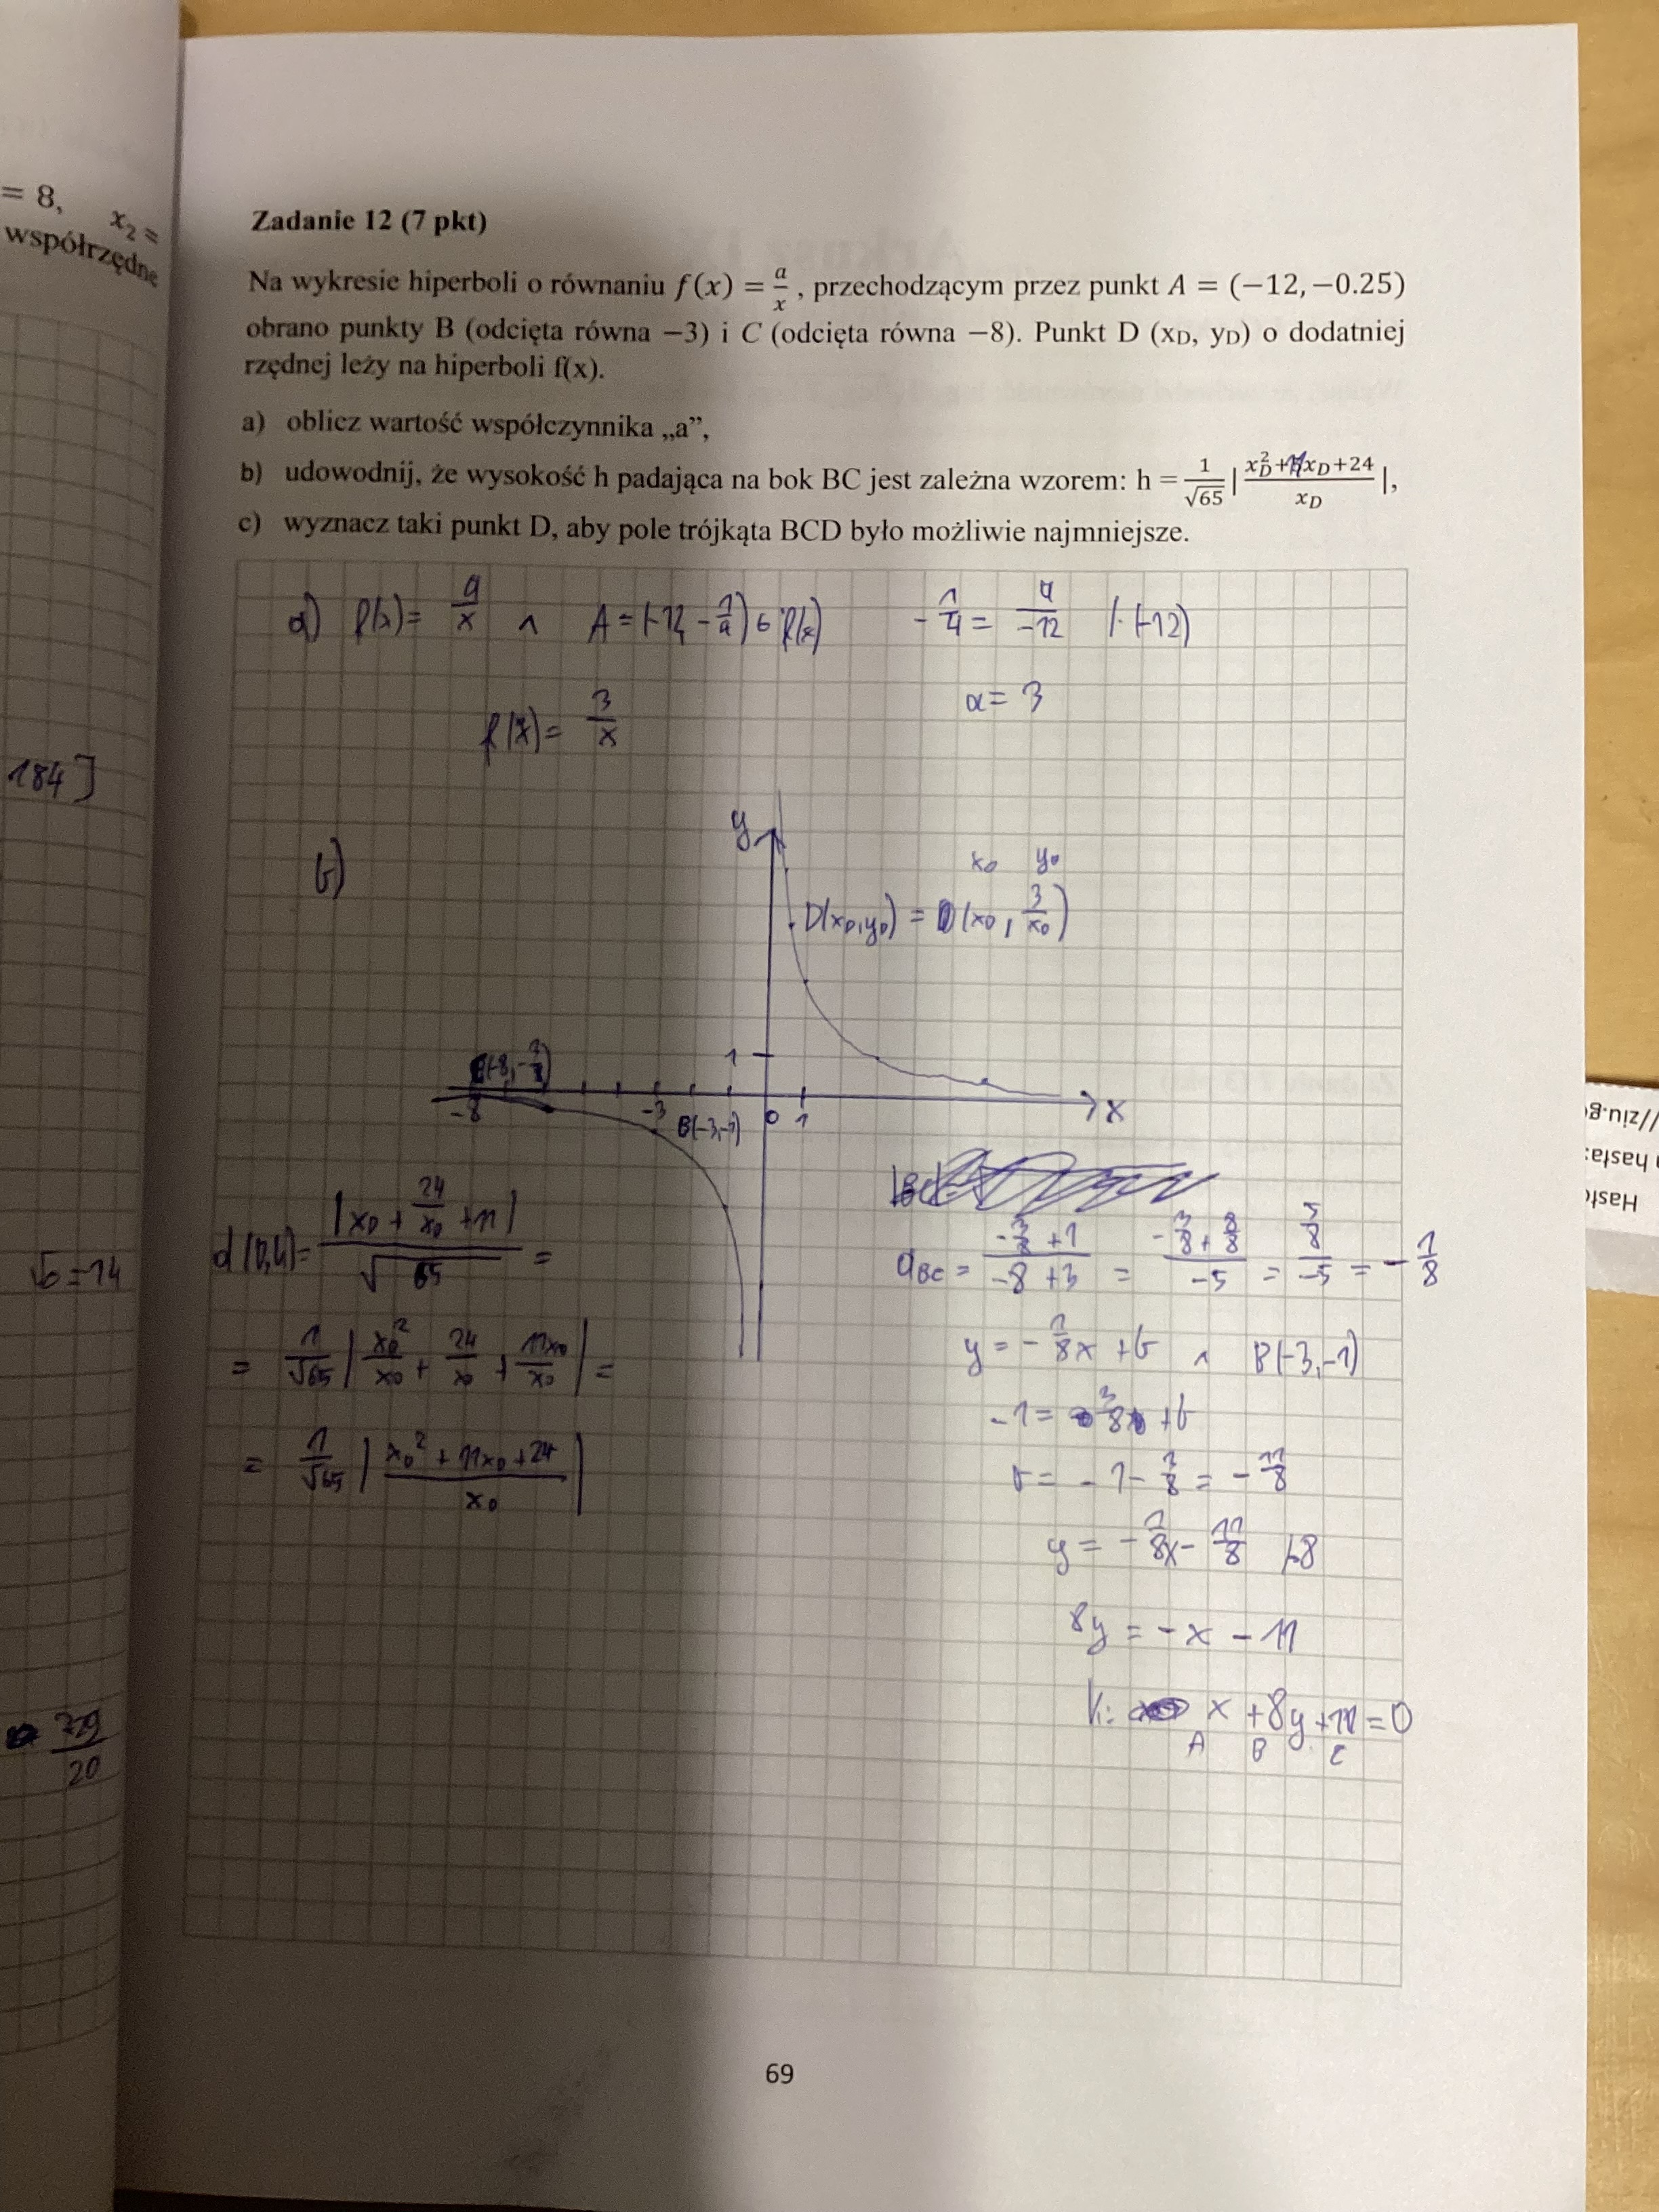 = 8, x₂ =
współrzędne
184]
√6 = 14
229/20
Zadanie 12 (7 pkt)
Na wykresie hiperboli o równaniu f(x) = a/x , przechodzącym przez punkt A = (−12, −0.25)
obrano punkty B (odcięta równa −3) i C (odcięta równa −8). Punkt D (xD, yD) o dodatniej
rzędnej leży na hiperboli f(x).
a) oblicz wartość współczynnika „a”,
b) udowodnij, że wysokość h padająca na bok BC jest zależna wzorem: h = 1/√65 | (x_D² + 11x_D + 24)/x_D |,
c) wyznacz taki punkt D, aby pole trójkąta BCD było możliwie najmniejsze.
a) f(x) = a/x ∧ A = (−12, −1/4) ∈ f(x) −1/4 = a/−12 /·(−12)
a = 3
f(x) = 3/x
b)
y
x_D y_D
D(x_D, y_D) = D(x_D, 3/x_D)
C(−8, −3/8)
1
−8 −3 B(−3,−1) 0 1 x
|BC|
d(D,k) = |x_D + 24/x_D + 11| / √65 =
= 1/√65 | x_D²/x_D + 24/x_D + 11x_D/x_D | =
= 1/√65 | (x_D² + 11x_D + 24)/x_D |
a_BC = (−3/8 + 1)/(−8 + 3) = (−3/8 + 8/8)/−5 = (5/8)/−5 = −1/8
y = −1/8x + b ∧ B(−3,−1)
−1 = 3/8 + b
b = −1 − 3/8 = −11/8
y = −1/8x − 11/8 /·8
8y = −x − 11
k: x + 8y + 11 = 0
A B C
69
//ziu.go
hasta:
Hasło